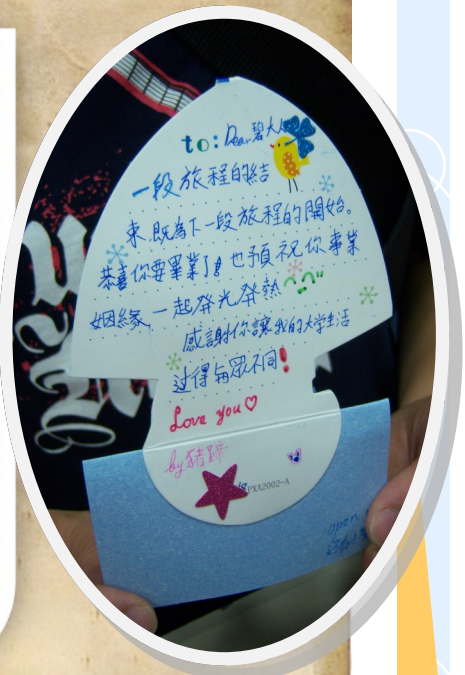 to: Dear 碧大人
一段旅程的結
束、既為下一段旅程的開始。
恭喜你要畢業了! 也預祝你事業
姻緣、一起発光発熱
感謝你讓我的大学生活
过得与眾不同!
Love you♡
by豬
PXA2002-A
open